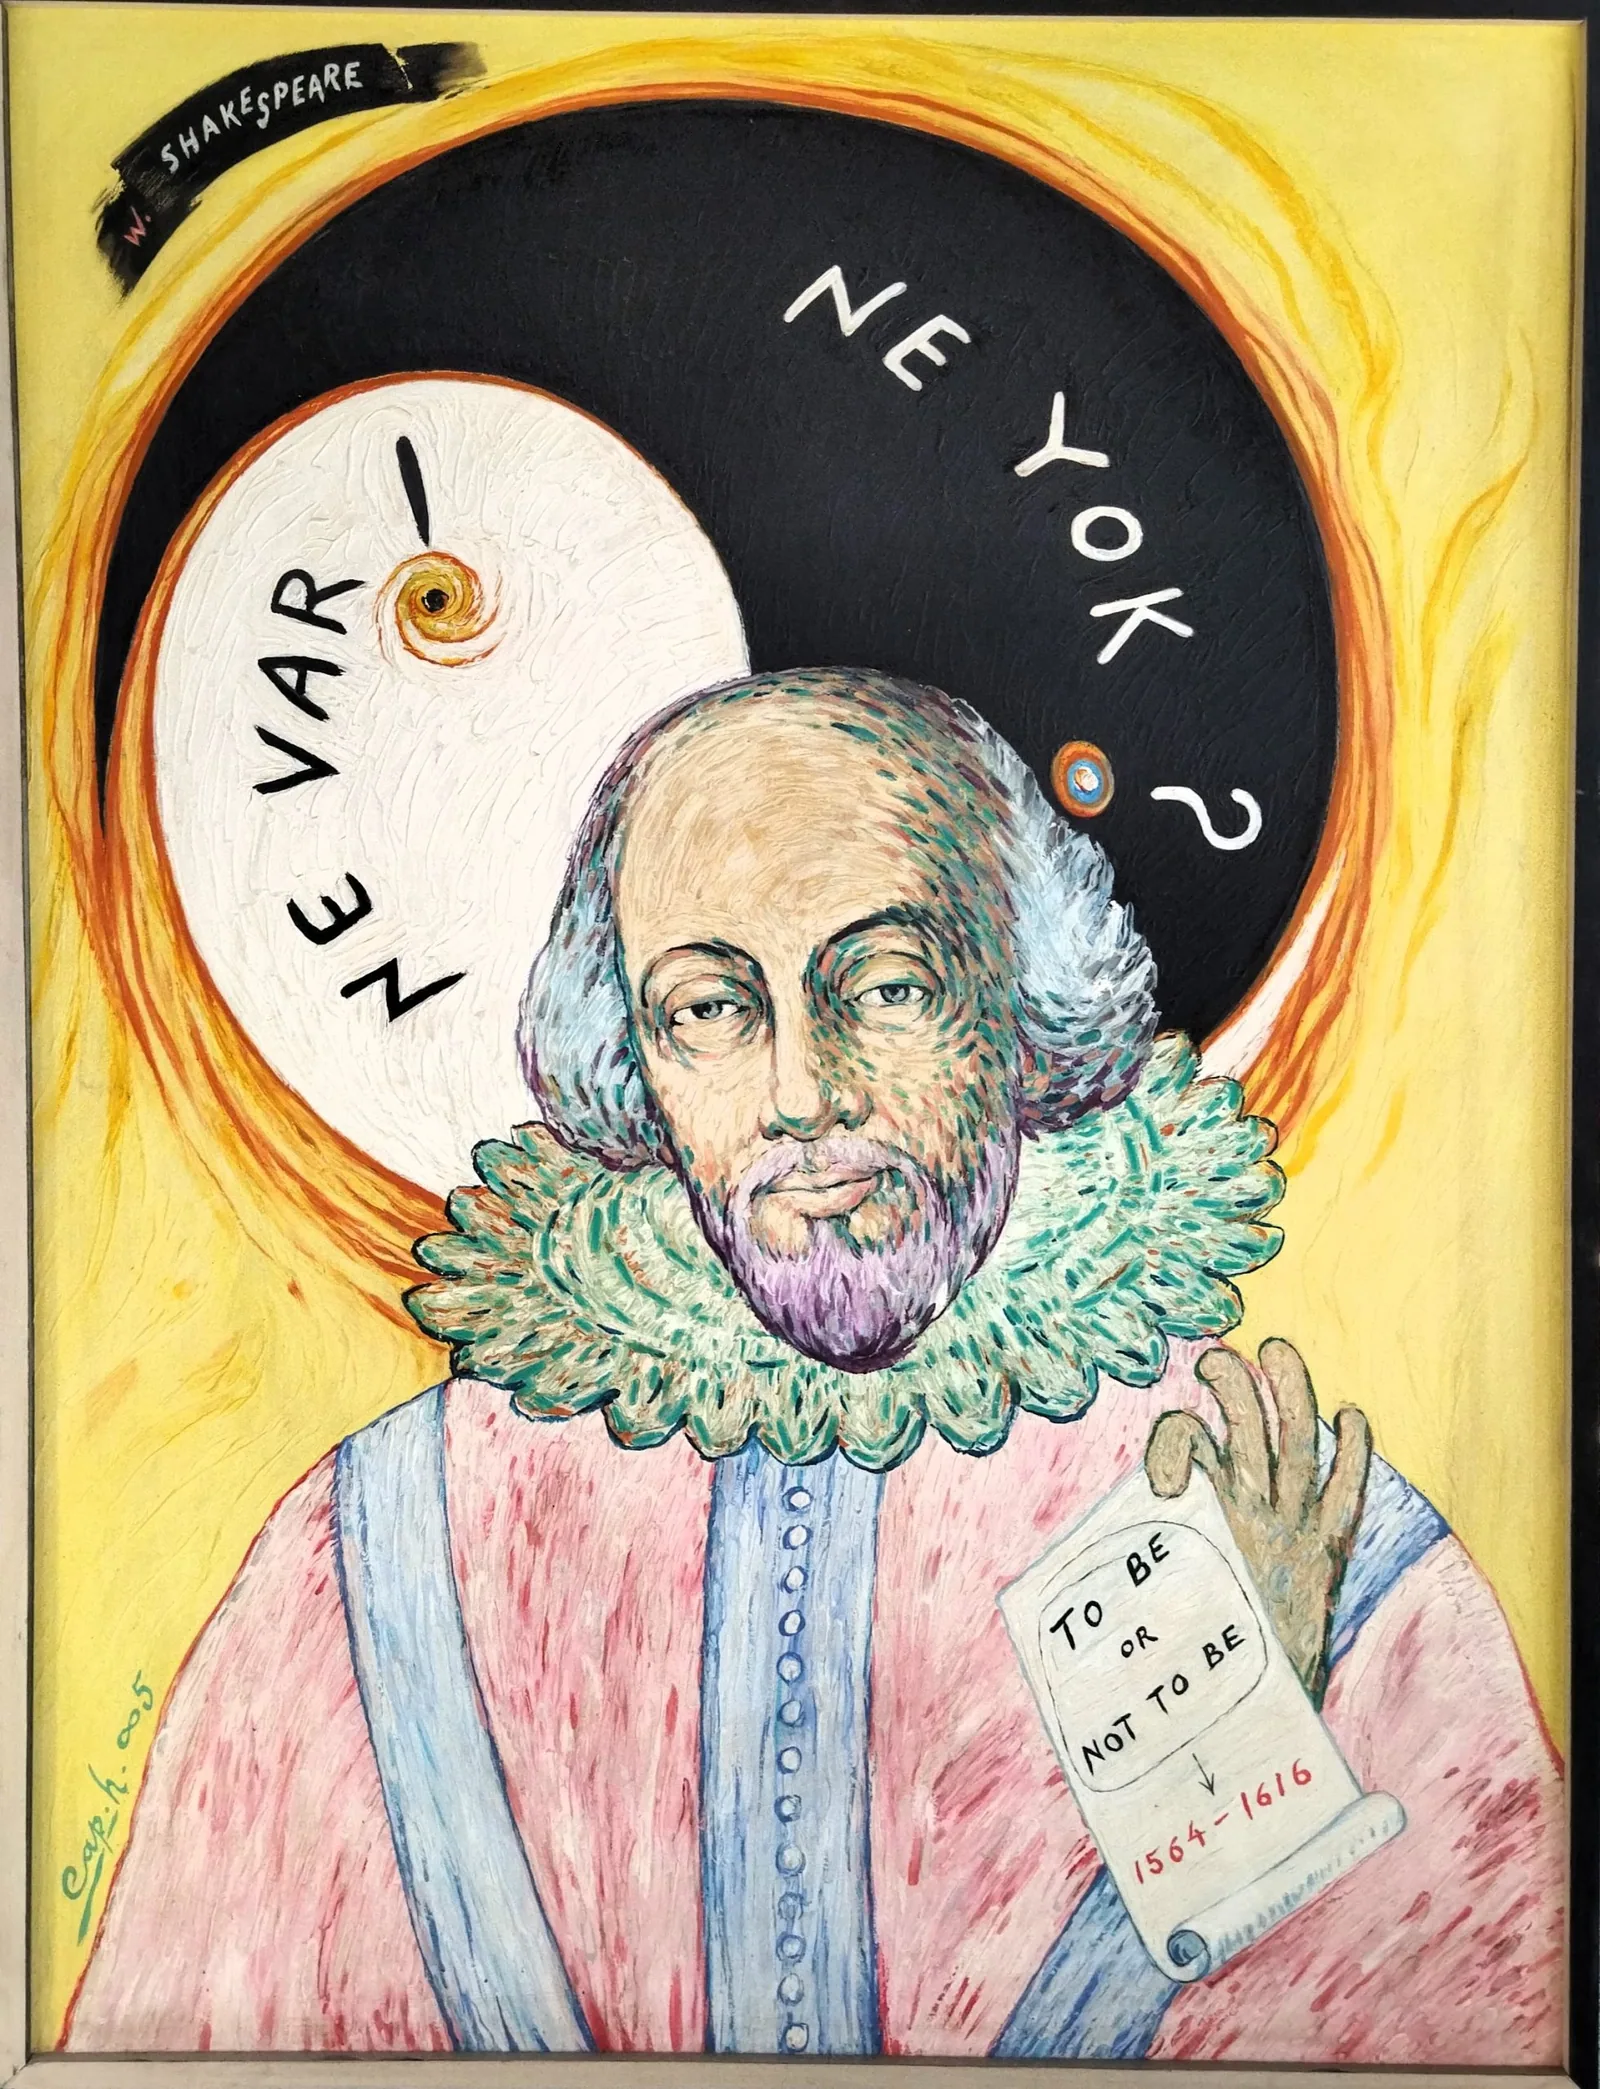 W. SHAKESPEARE
NE VAR !
NE YOK ?
TO BE
OR
NOT TO BE
1564-1616
cap.h. 005